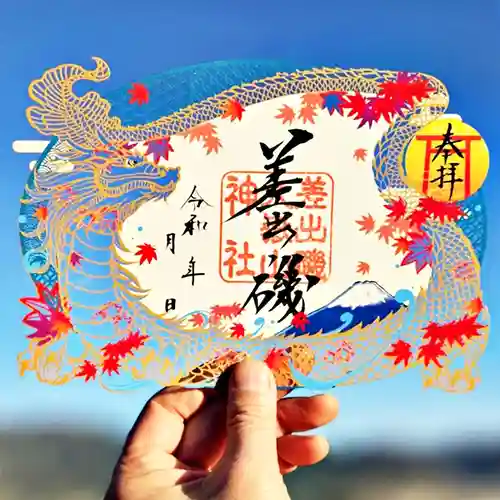 奉拝
差出磯
差出磯
神社
令和
年
月
日